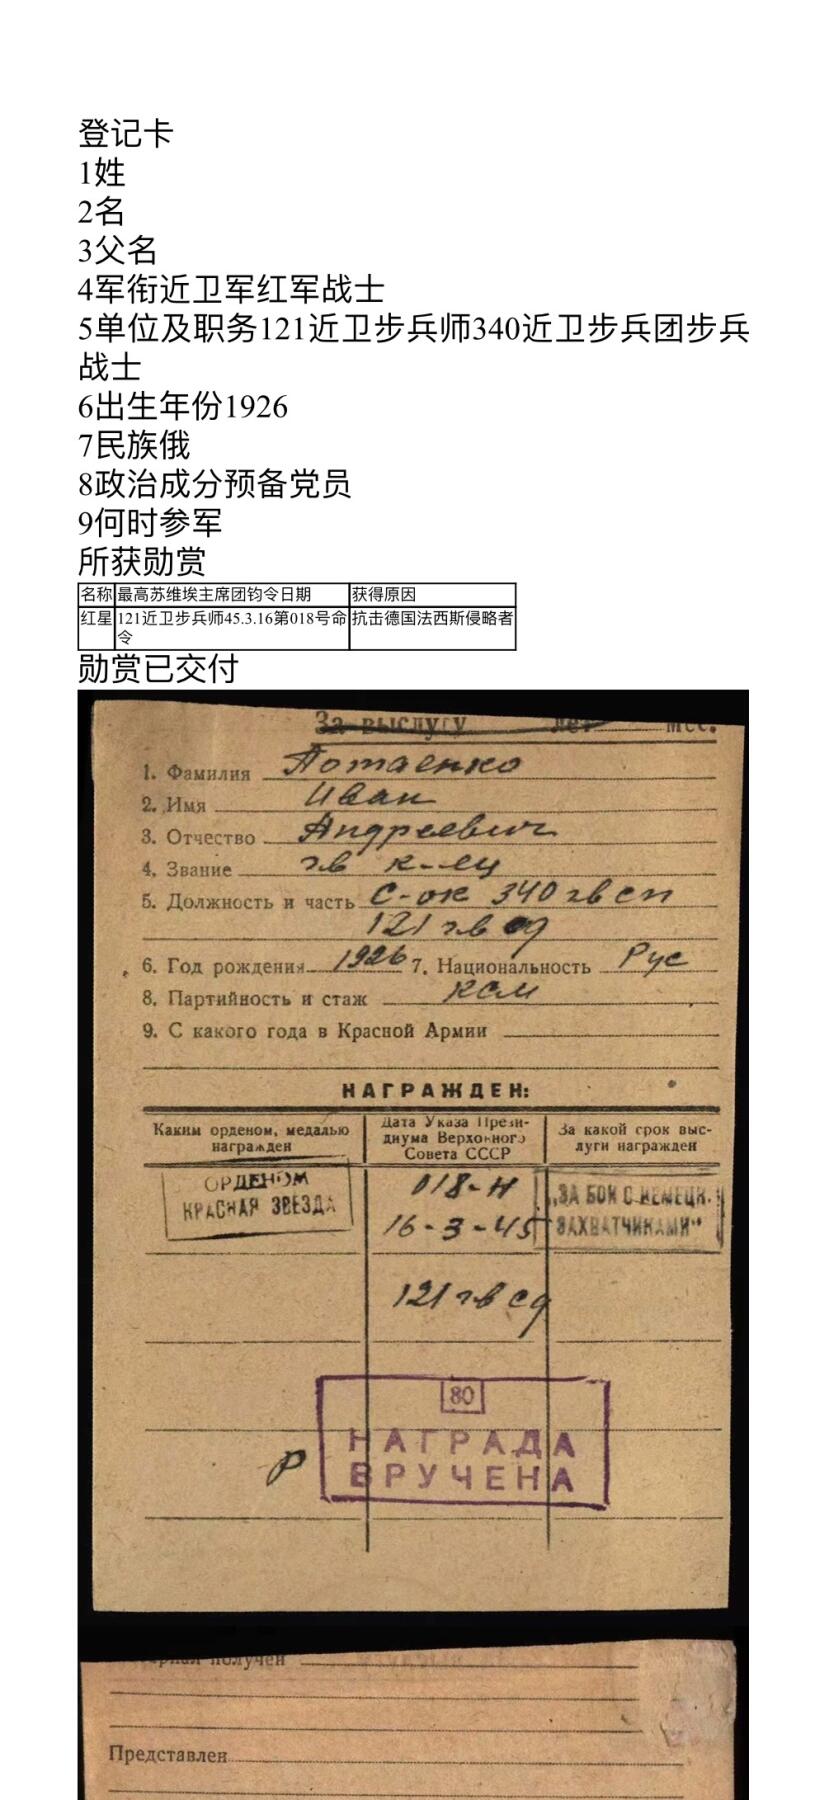 登记卡
1姓
2名
3父名
4军衔近卫军红军战士
5单位及职务121近卫步兵师340近卫步兵团步兵
战士
6出生年份1926
7民族俄
8政治成分预备党员
9何时参军
所获勋赏
名称 最高苏维埃主席团钧令日期 获得原因
红星 121近卫步兵师45.3.16第018号命 抗击德国法西斯侵略者
令
勋赏已交付
За выслугу лет мес.
1. Фамилия Потаенко
2. Имя Иван
3. Отчество Андреевич
4. Звание гв к-ец
5. Должность и часть С-ок 340 гв сп
121 гв сд
6. Год рождения 1926 7. Национальность Рус
8. Партийность и стаж КСМ
9. С какого года в Красной Армии
НАГРАЖДЕН:
Каким орденом, медалью Дата Указа Прези- За какой срок выс-
награжден диума Верховного луги награжден
Совета СССР
ОРДЕНОМ 018-Н „ЗА БОИ С НЕМЕЦК.
КРАСНАЯ ЗВЕЗДА 16-3-45 ЗАХВАТЧИКАМИ"
121 гв сд
80
НАГРАДА
Р ВРУЧЕНА
получен
Представлен